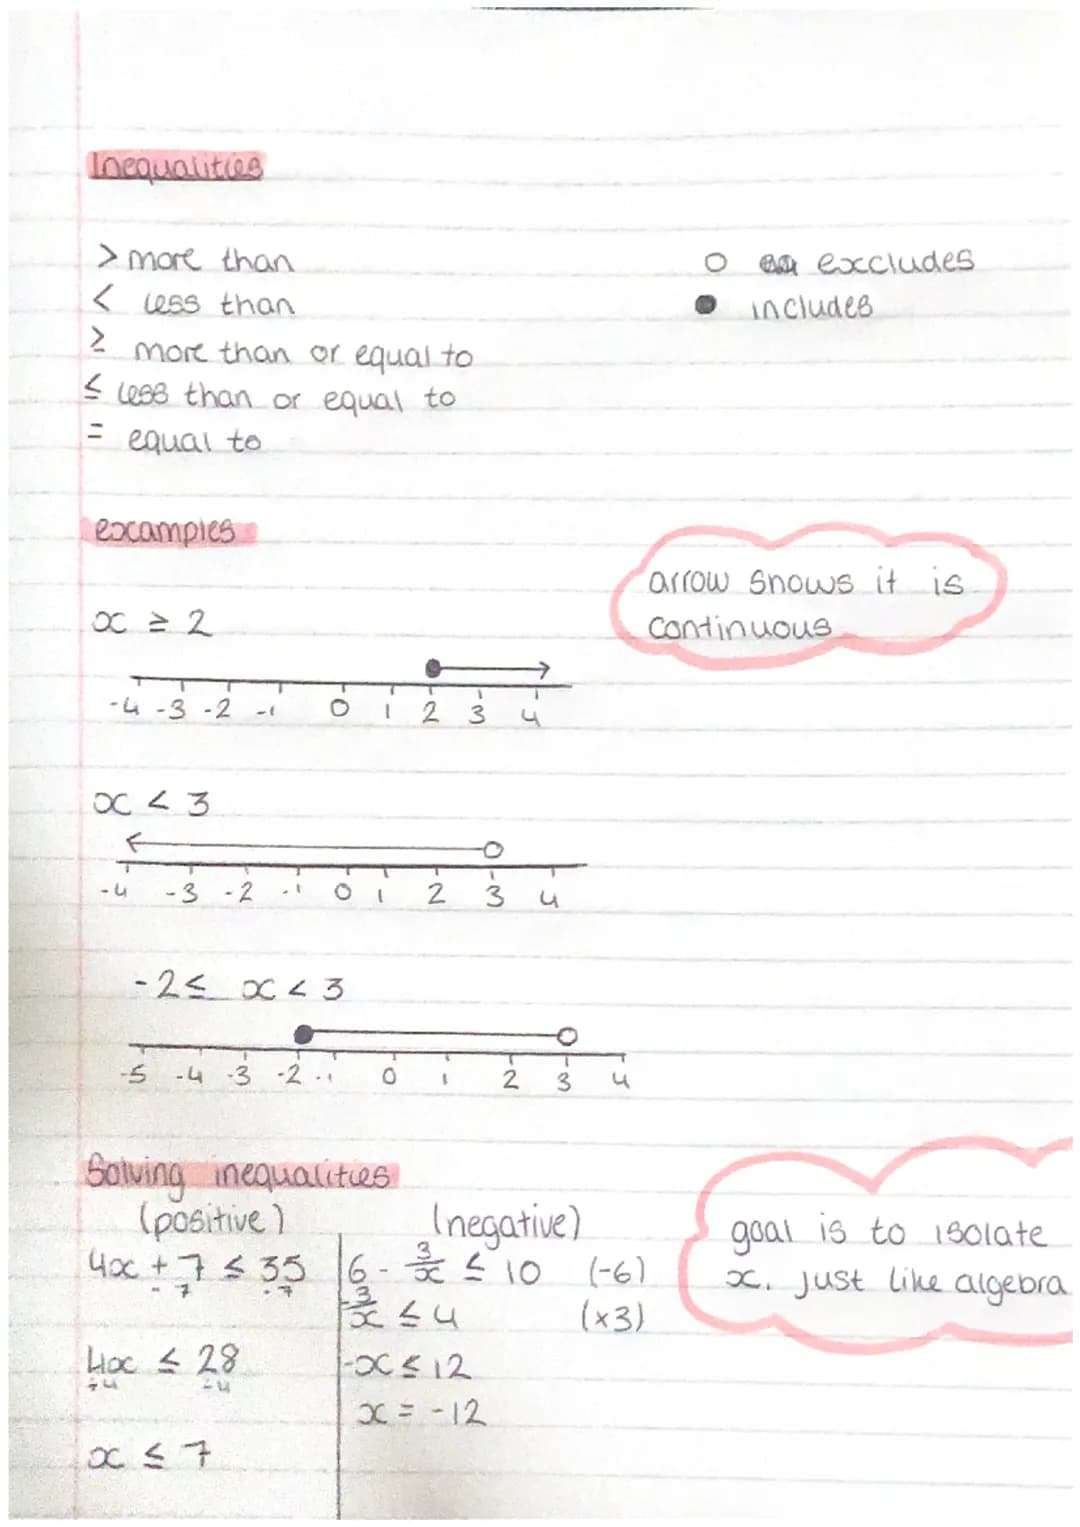 Inequalities
> more than
< less than
≥ more than or equal to
≤ less than or equal to
= equal to
○ excludes
● includes
examples
arrow shows it is
continuous
x ≥ 2
-4 -3 -2 -1 0 1 2 3 4
x < 3
-4 -3 -2 -1 0 1 2 3 4
-2 ≤ x < 3
-5 -4 -3 -2 -1 0 1 2 3 4
Solving inequalities
(positive)
4x + 7 ≤ 35
-7 -7
4x ≤ 28
÷4 ÷4
x ≤ 7
(negative)
6 - 3/x ≤ 10 (-6)
-3/x ≤ 4 (×3)
-x ≤ 12
x = -12
goal is to isolate
x. Just like algebra